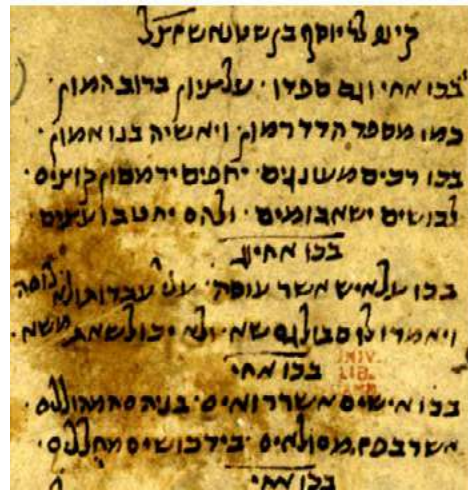 קינה לר יוסף בן שטנאש זצל
בכו אחי וגם ספדו · על ציון ברוב המון ·
כמו מספד הדד רמון · ויאשיה בנו אמון ·
בכו רכים מעונגים · יחפים ירמסון קוצים ·
לבושים ישאבו מים · ולהם יחטבו עצים
בכו אחי וג
בכו על איש אשר עוסה · עלי עבדות ולא נוסה
ויאמרו לו סבול גם שא · ולא יכול שאת משא ·
UNIV.
LIB.
בכו אחי
בכו אישים אשר רואים · בניהם מהוללים ·
אשר בפז מסולאים · ביד כושים מחללים ·
בכו אחי